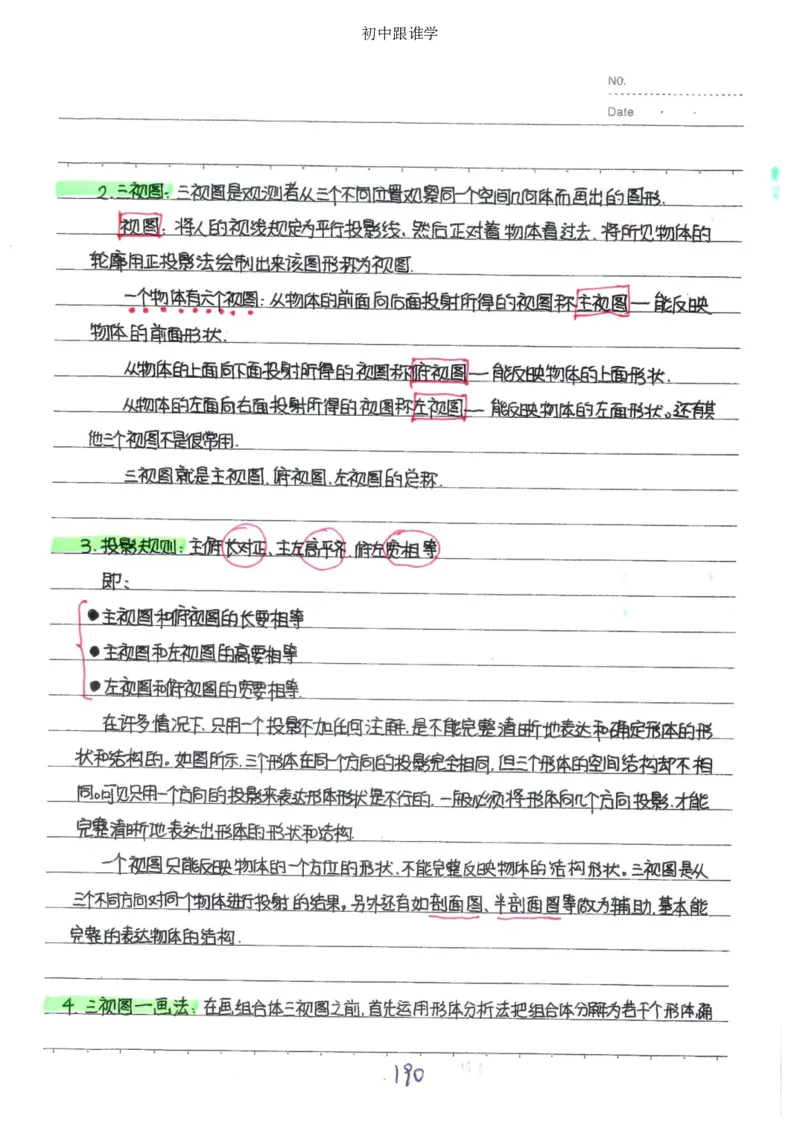 初中跟谁学
NO.
Date
2.三视图:三视图是观测者从三个不同位置观察同一个空间几何体而画出的图形.
视图:将人的视线规定为平行投影线、然后正对着物体看过去、将所见物体的
轮廓用正投影法绘制出来该图形称为视图.
一个物体有六个视图:从物体的前面向后面投射所得的视图称主视图—能反映
物体的前面形状.
从物体的上面向下面投射所得的视图称俯视图—能反映物体的上面形状.
从物体的左面向右面投射所得的视图称左视图—能反映物体的左面形状。还有其
他三个视图不是很常用.
三视图就是主视图、俯视图、左视图的总称.
3.投影规则:主俯长对正、主左高平齐、俯左宽相等
即:
●主视图和俯视图的长要相等
●主视图和左视图的高要相等
●左视图和俯视图的宽要相等.
在许多情况下、只用一个投影不加任何注解,是不能完整清晰地表达和确定形体的形
状和结构的。如图所示、三个形体在同一个方向的投影完全相同,但三个形体的空间结构却不相
同。可见只用一个方向的投影来表达形体形状是不行的.一般必须将形体向几个方向投影.才能
完整清晰地表达出形体的形状和结构.
一个视图只能反映物体的一个方位的形状、不能完整反映物体的结构形状。三视图是从
三个不同方向对同一个物体进行投射的结果。另外还有如剖面图、半剖面图等做为辅助.基本能
完整的表达物体的结构.
4.三视图一画法:在画组合体三视图之前,首先运用形体分析法把组合体分解为若干个形体.确
190